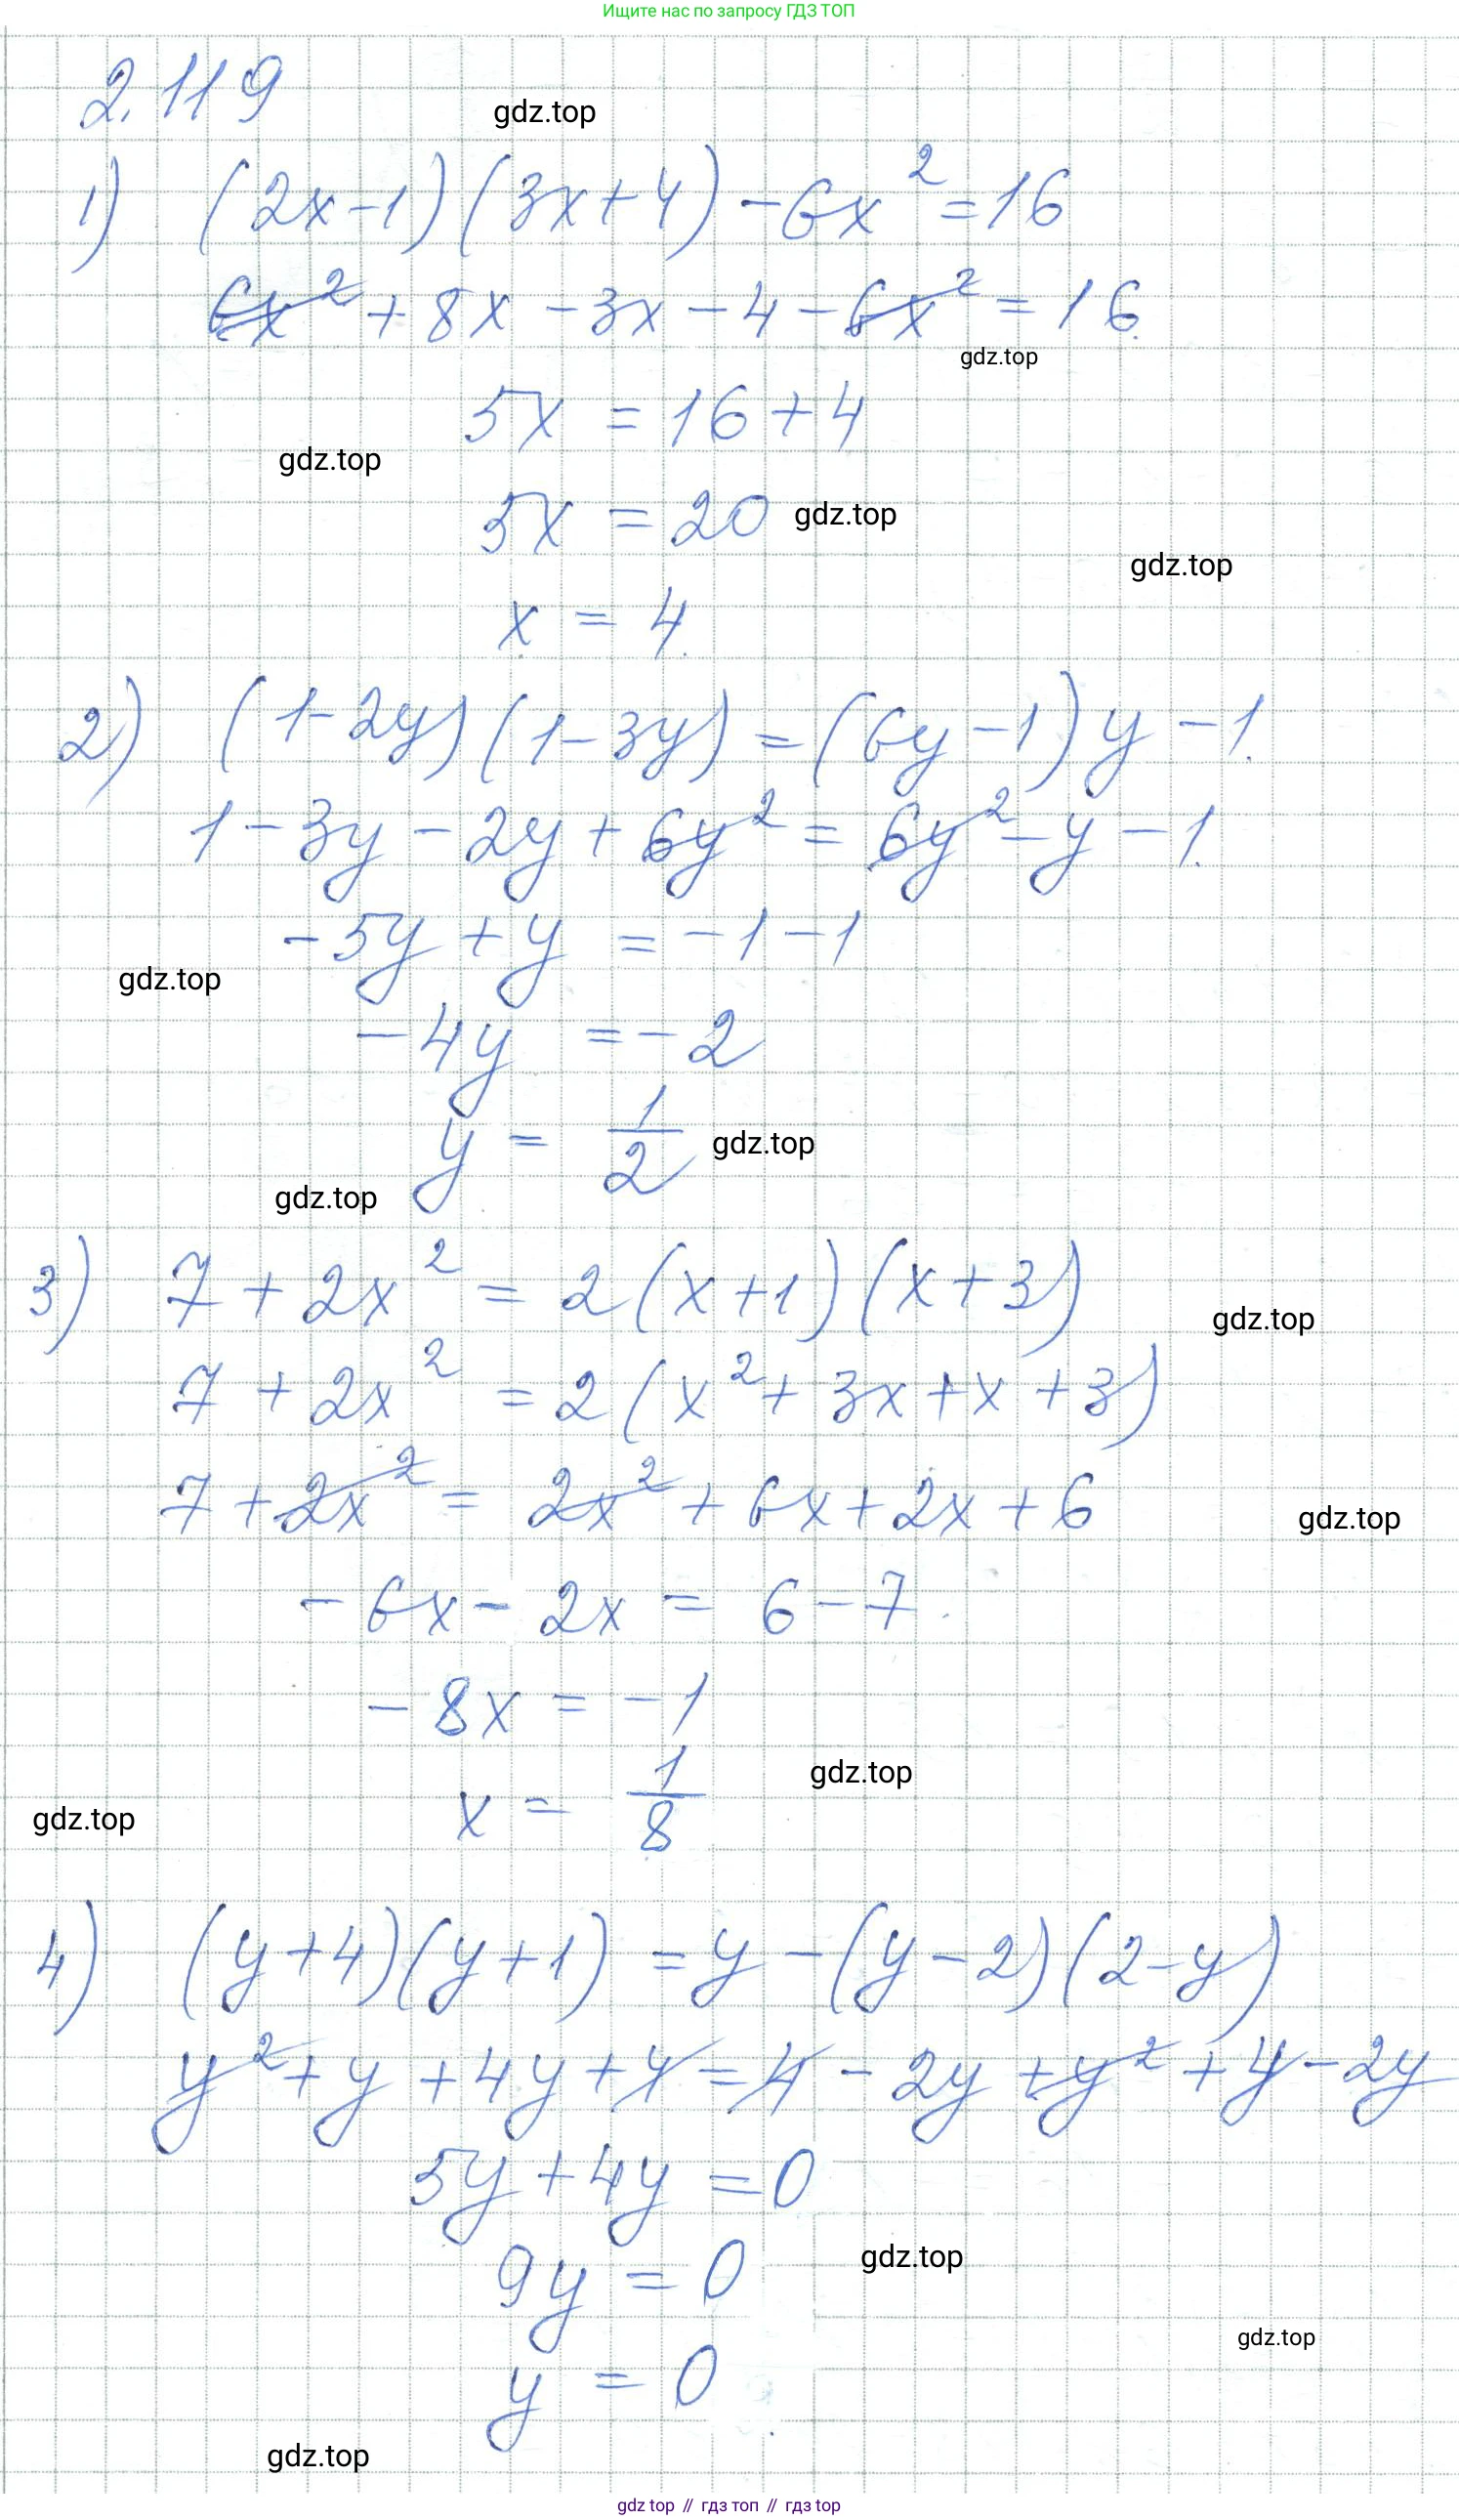 Ищите нас по запросу ГДЗ ТОП
2.119
gdz.top
1) (2x-1)(3x+4)-6x²=16
6x²+8x-3x-4-6x²=16.
gdz.top
5x=16+4
gdz.top
5x=20
gdz.top
gdz.top
x=4.
2) (1-2y)(1-3y)=(6y-1)y-1.
1-3y-2y+6y²=6y²-y-1.
-5y+y=-1-1
gdz.top
-4y=-2
y=1/2
gdz.top
gdz.top
3) 7+2x²=2(x+1)(x+3)
gdz.top
7+2x²=2(x²+3x+x+3)
7+2x²=2x²+6x+2x+6
gdz.top
-6x-2x=6-7
-8x=-1
x=1/8
gdz.top
gdz.top
4) (y+4)(y+1)=y-(y-2)(2-y)
y²+y+4y+4=4-2y+y²+y-2y
5y+4y=0
9y=0
gdz.top
gdz.top
y=0
gdz.top
gdz top // гдз топ // гдз top